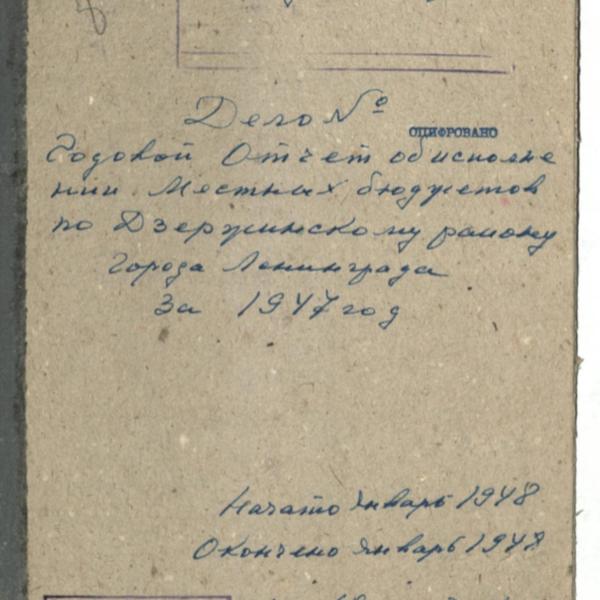 Дело №
ОЦИФРОВАНО
Годовой Отчет об исполне
нии Местных бюджетов
по Дзержинскому району
города Ленинграда
за 1947 год
Начато Январь 1948
Окончено Январь 1948